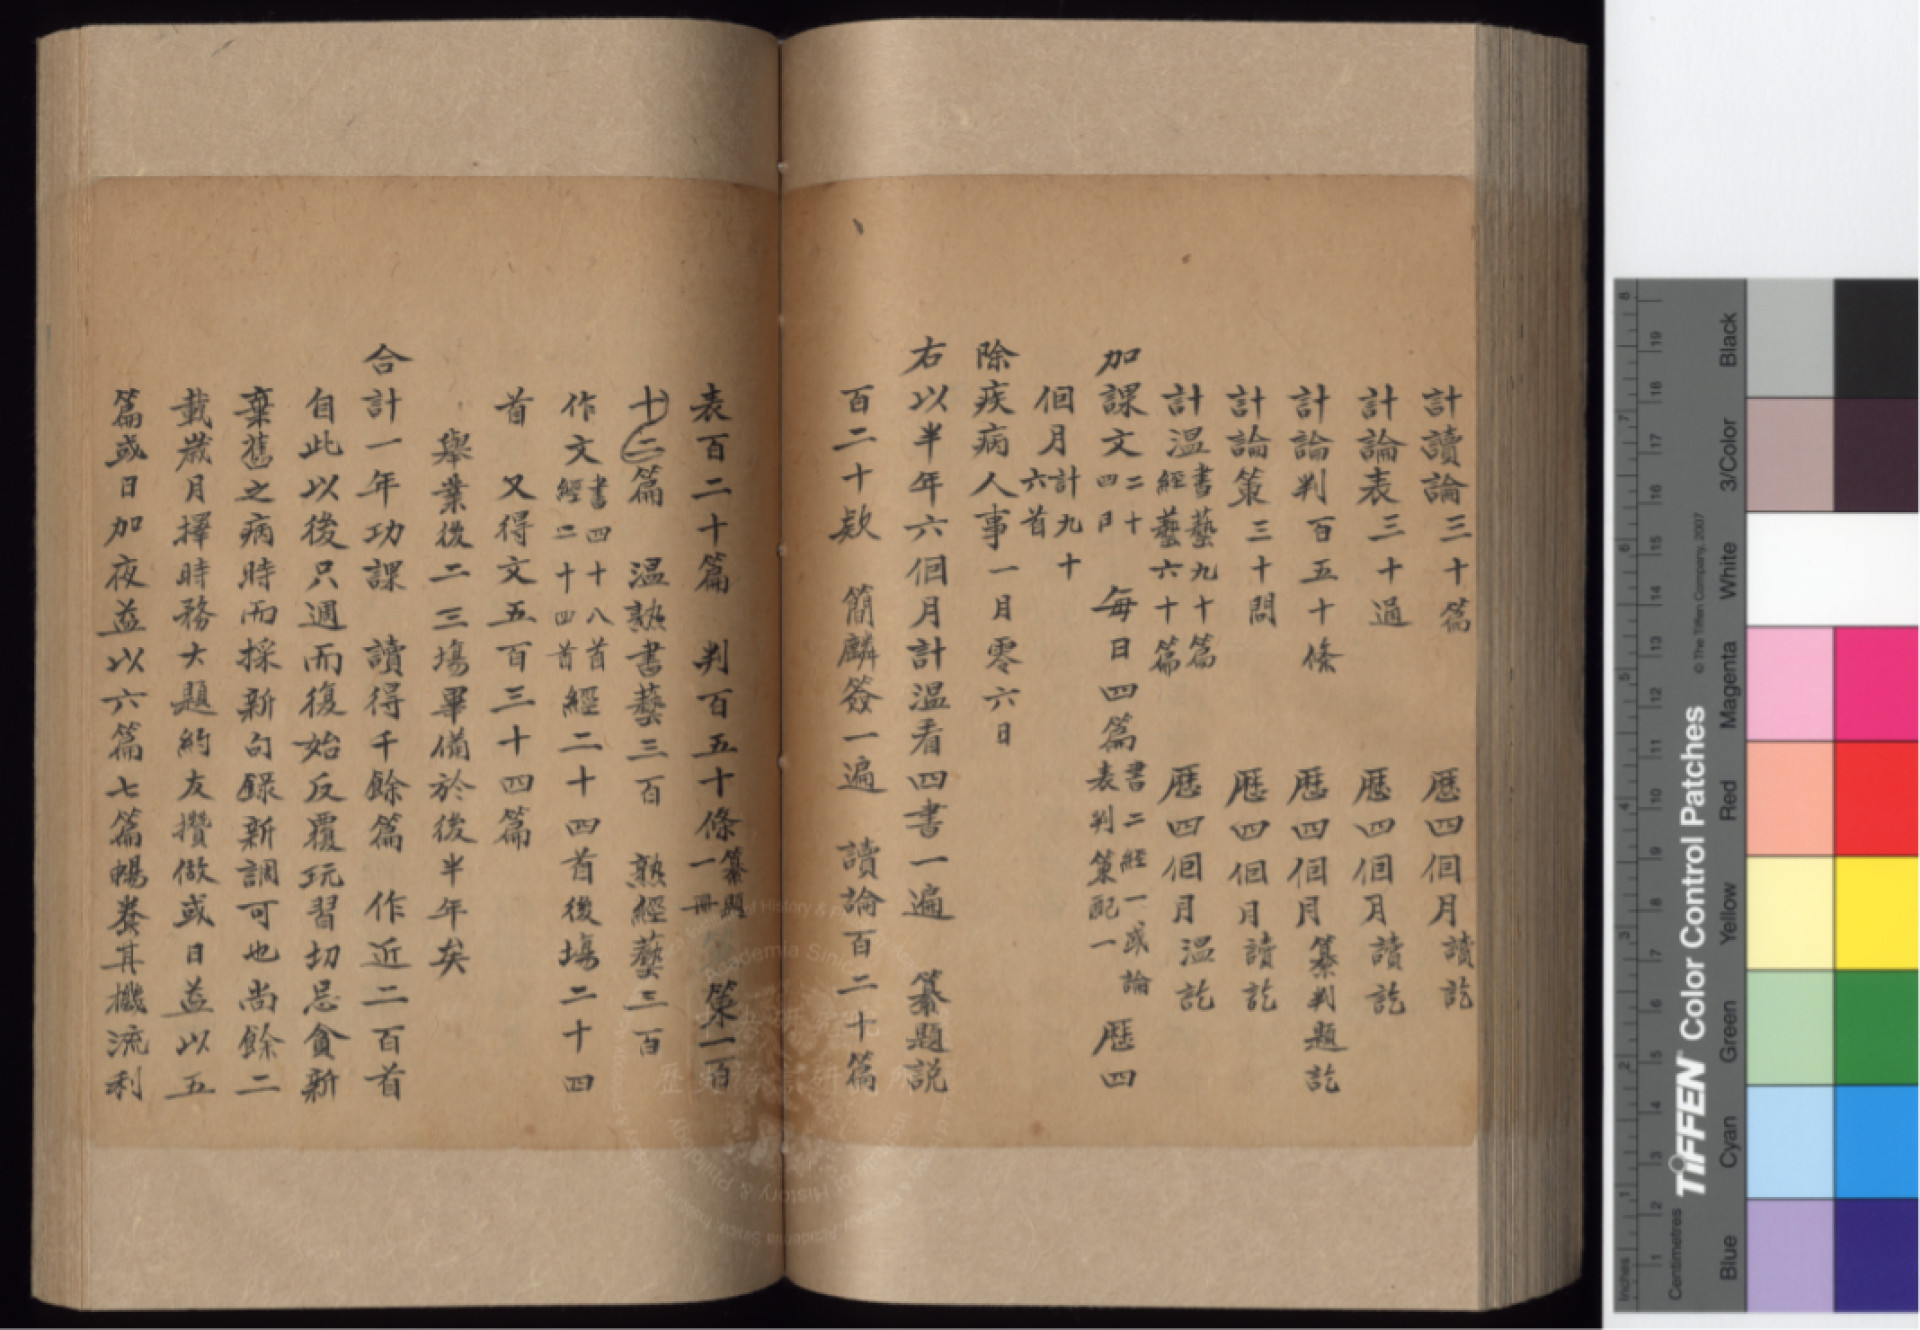 計讀論三十篇 歷四個月讀訖
計論表三十過 歷四個月讀訖
計論判百五十條 歷四個月纂判題訖
計論策三十問 歷四個月讀訖
計温書藝九十篇經藝六十篇 歷四個月温訖
加課文二十四日 每日四篇書二經一或論表判策配一 歷四
個月計九十六首
除疾病人事一月零六日
右以半年六個月計温看四書一遍 纂題説
百二十欵 簡麟簽一遍 讀論百二十篇
表百二十篇 判百五十條纂題一冊 策一百
十二篇 温熟書藝三百 熟經藝三百
作文書四十八首經二十四首經二十四首後塲二十四
首 又得文五百三十四篇
舉業後二三塲畢備於後半年矣
合計一年功課 讀得千餘篇 作近二百首
自此以後只週而復始反覆玩習切忌貪新
棄舊之病時而採新句錄新調可也尚餘二
載歲月擇時務大題約友攢做或日益以五
篇或日加夜益以六篇七篇暢養其機流利
Black
3/Color
White
Magenta
Red
Yellow
Green
Cyan
Blue
© The Tiffen Company, 2007
TIFFEN Color Control Patches
Centimetres
Inches